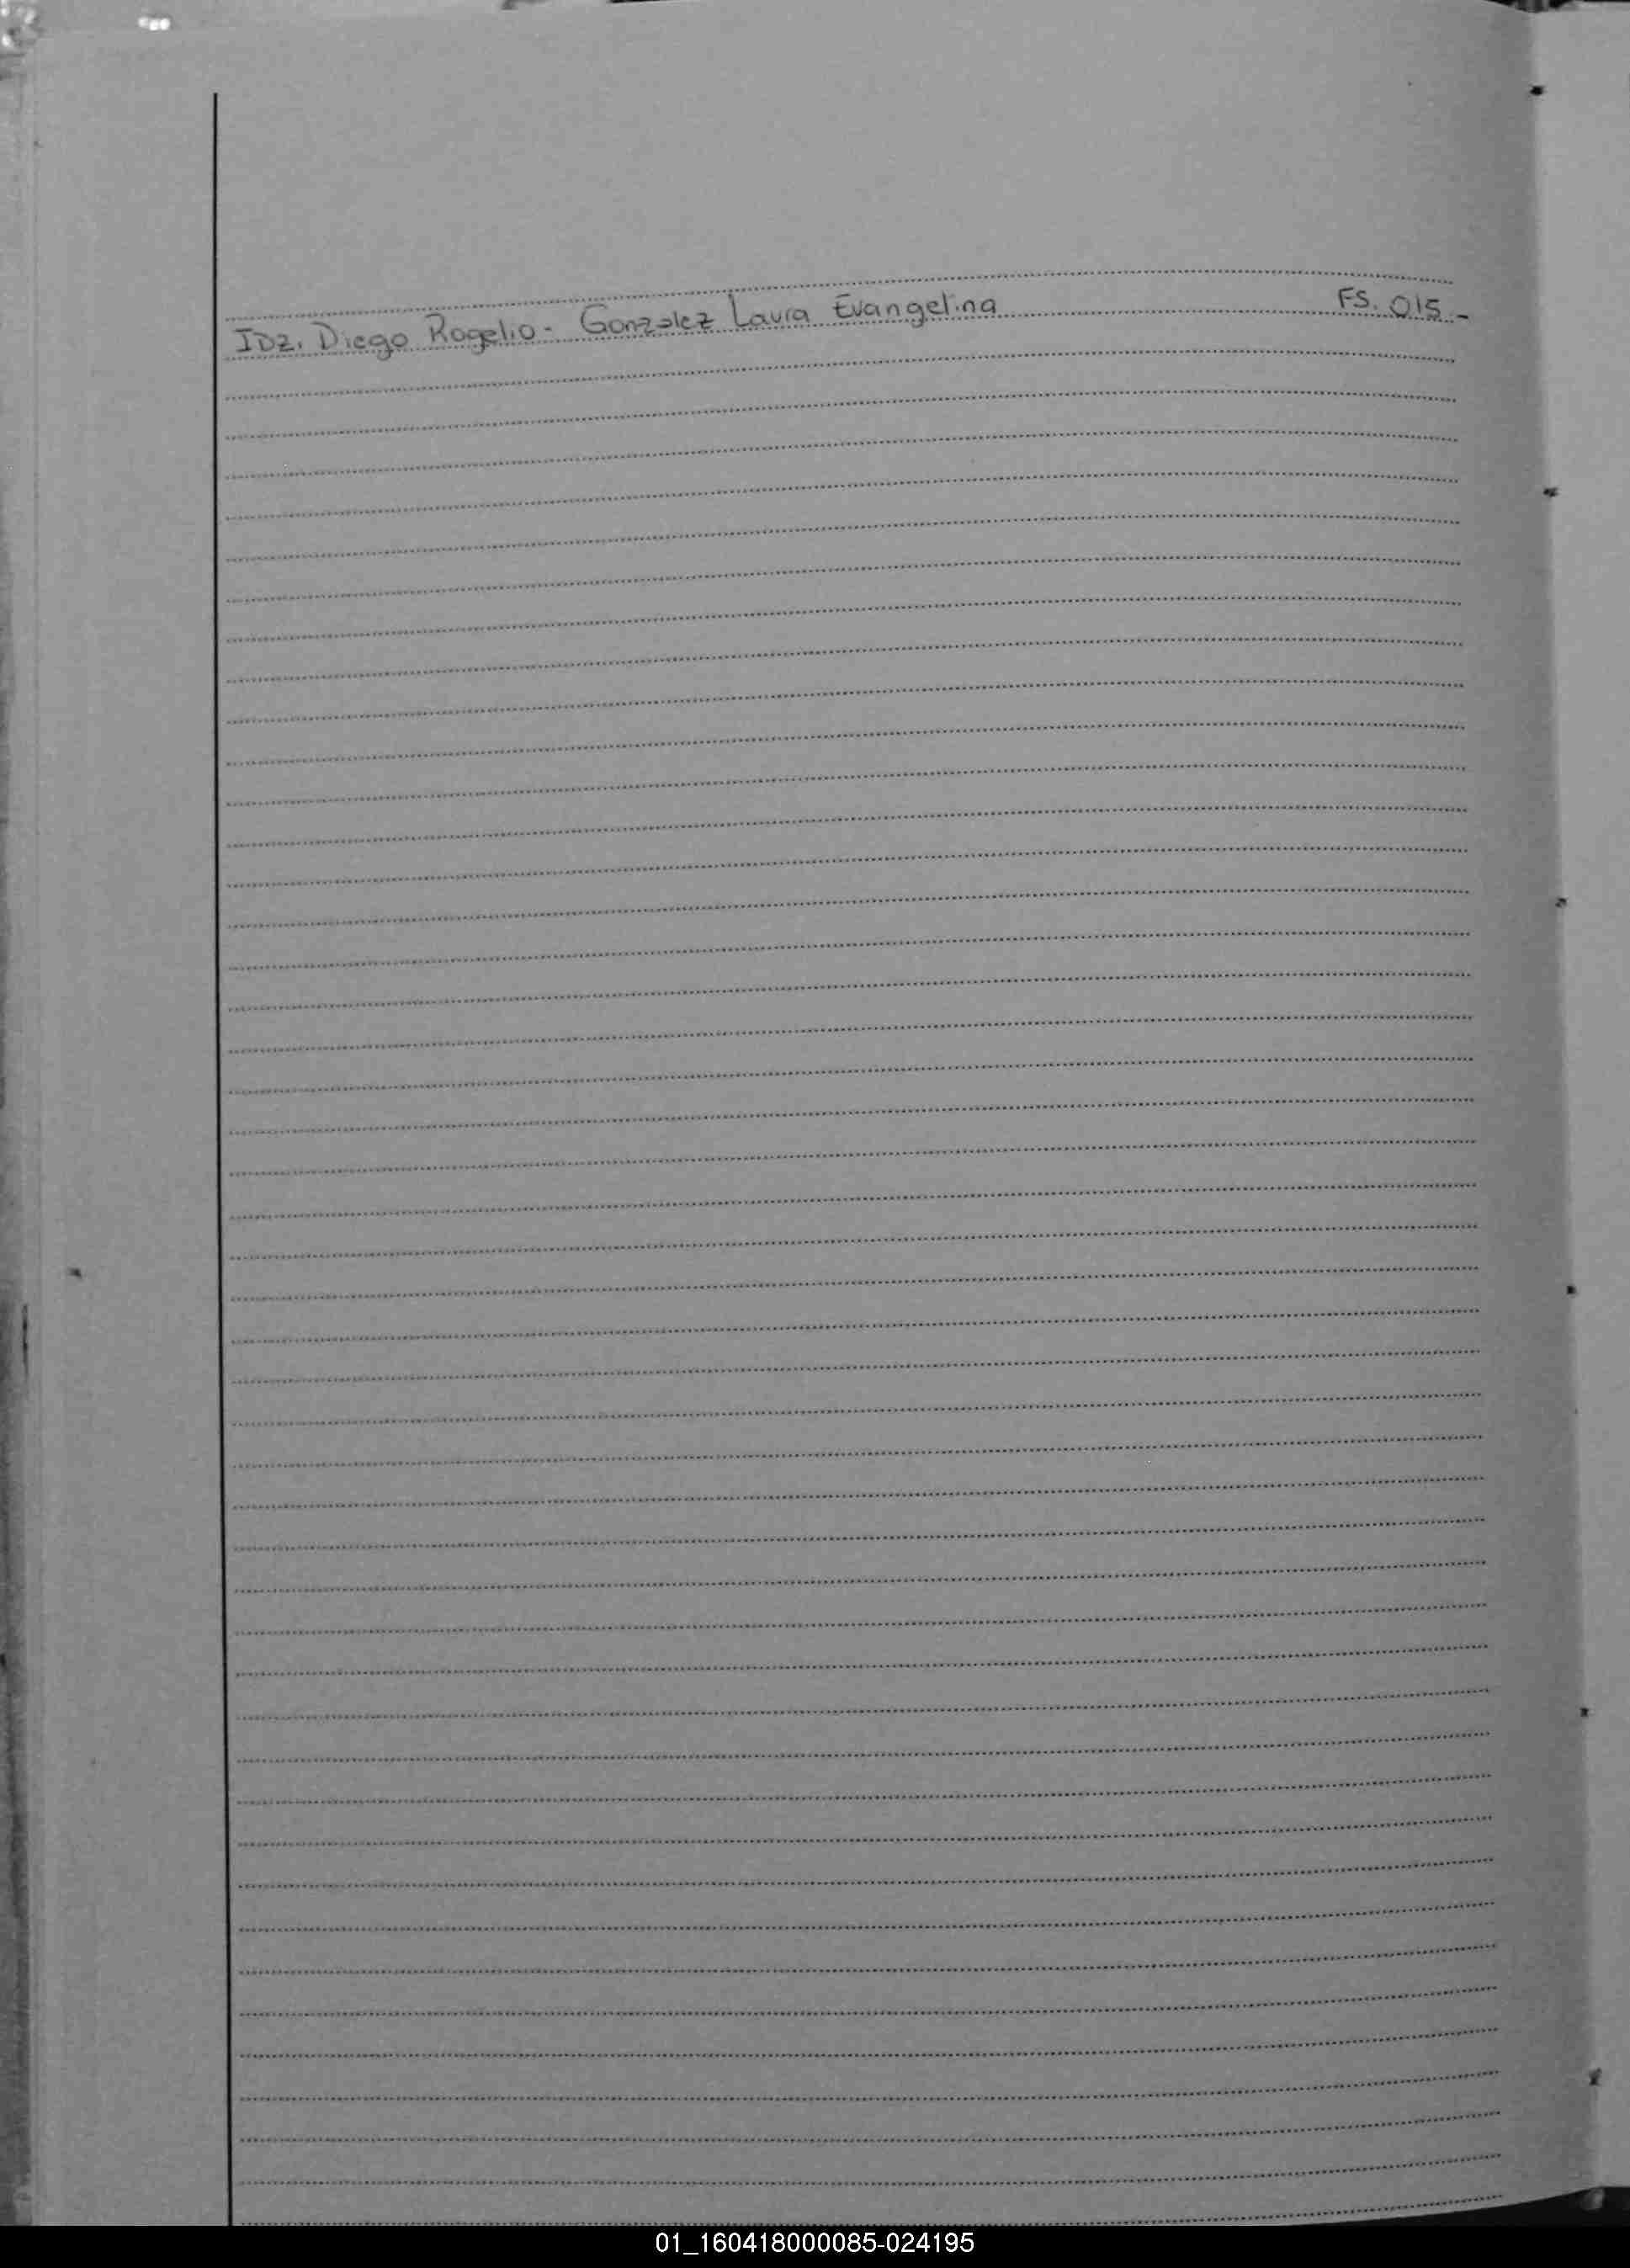 IDz. Diego Rogelio - Gonzalez Laura Evangelina FS. 015 -
01_160418000085-024195